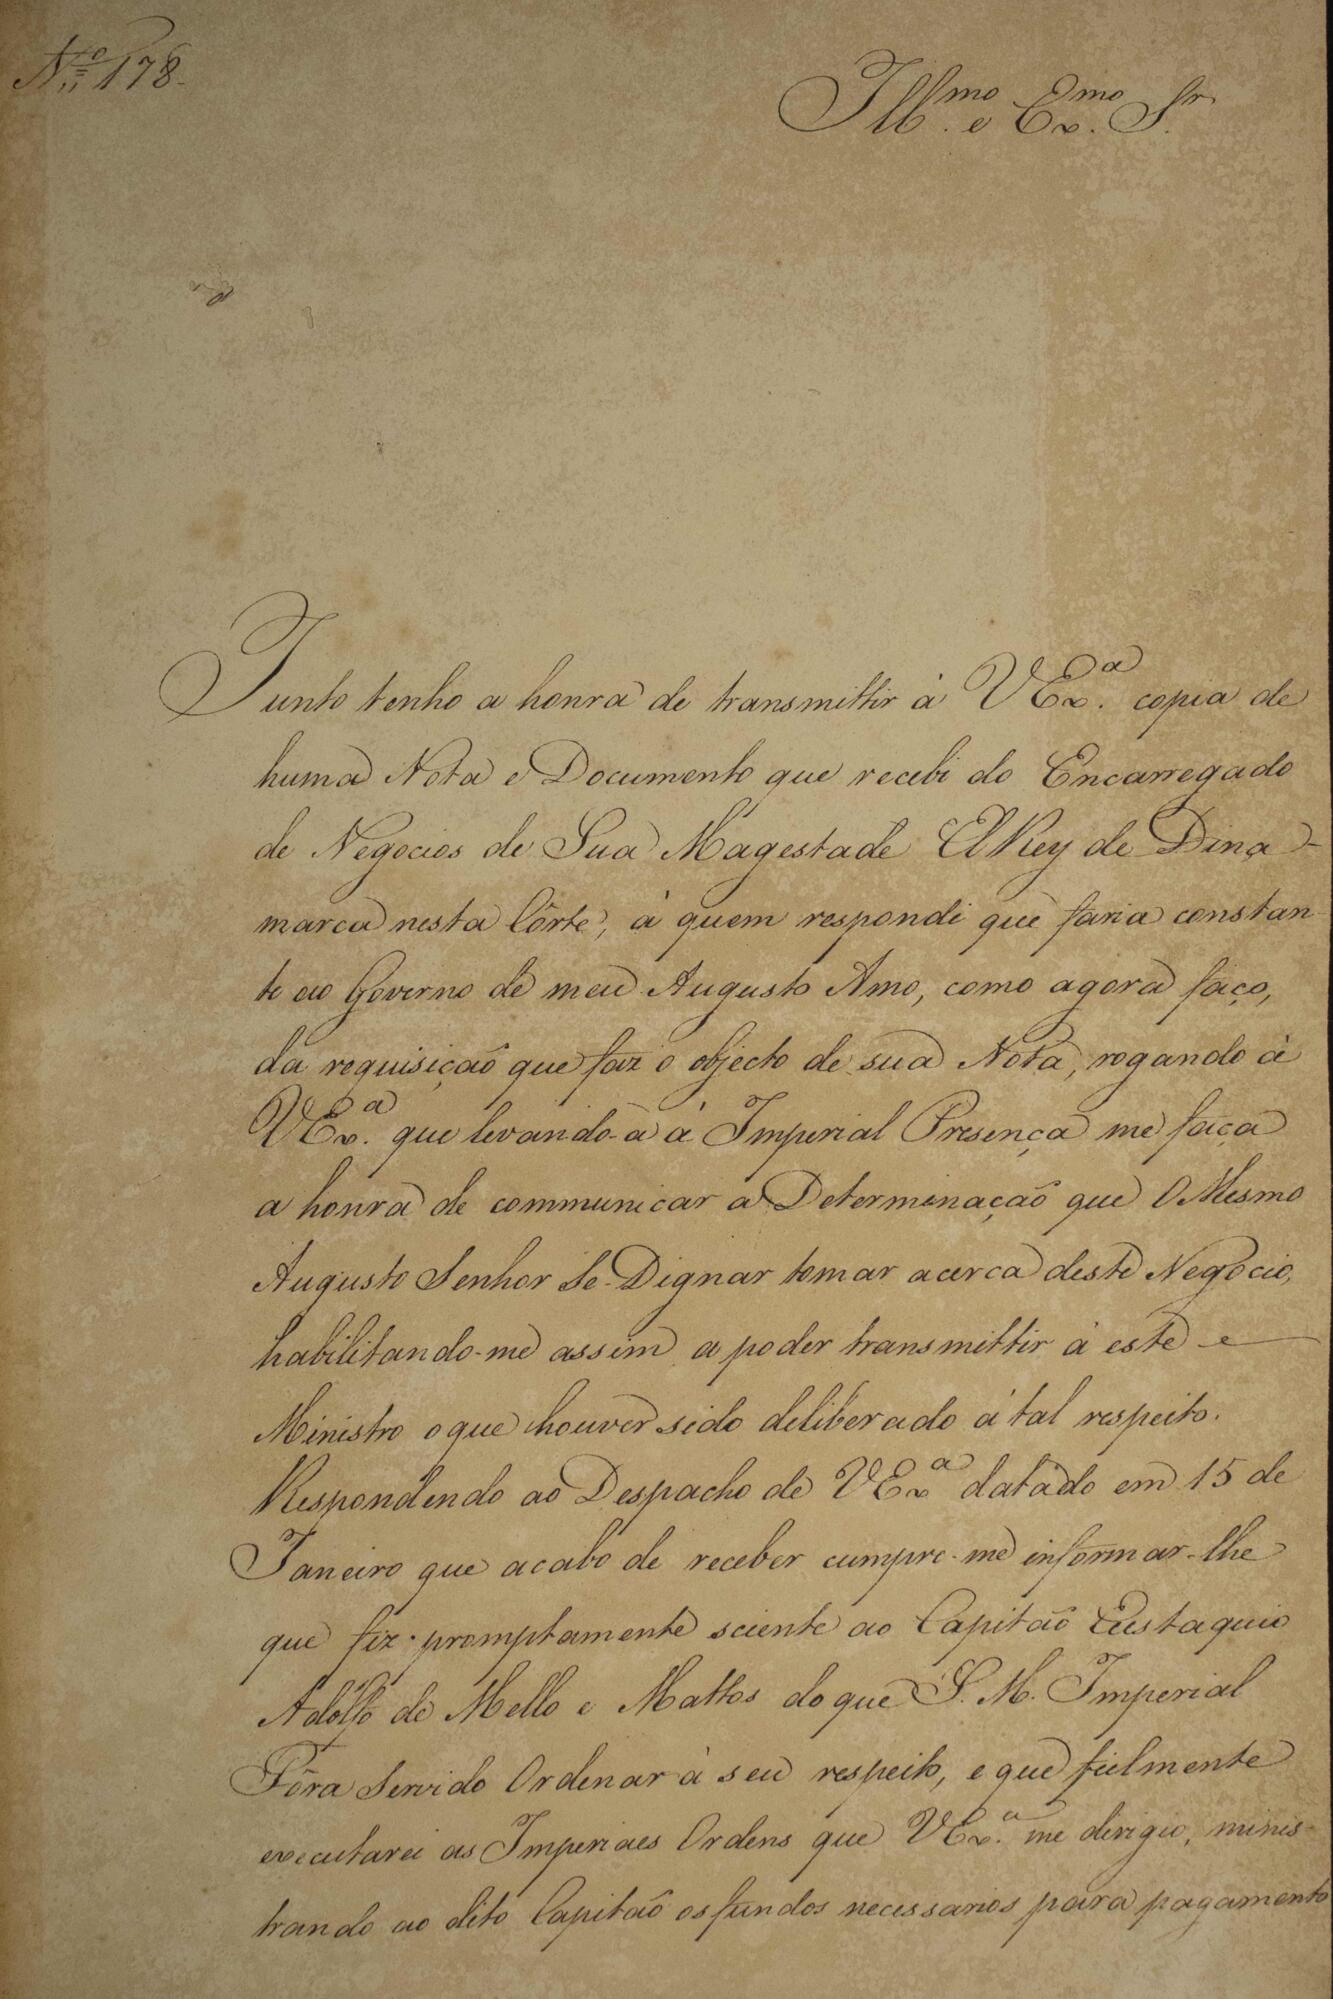 Nº 178.
Illmo. e Exmo. Sr.
Junto tenho a honra de transmittir à VExª. copia de
huma Nota e Documento que recebi do Encarregado
de Negocios de Sua Magestade ElRey de Dina-
marca nesta Côrte, à quem respondi que faria constan-
te ao Governo de meu Augusto Amo, como agora faço,
da requisição que faz o objecto de sua Nota, rogando à
VExª. que levando-a à Imperial Presença me faça
a honra de communicar a Determinação que O Mesmo
Augusto Senhor Se Dignar tomar acerca deste Negocio,
habilitando-me assim a poder transmittir à este
Ministro o que houver sido deliberado à tal respeito.
Respondendo ao Despacho de VExª datado em 15 de
Janeiro que acabo de receber cumpre-me informar-lhe
que fiz promptamente sciente ao Capitão Eustaquio
Adolfo de Mello e Mattos do que S. M. Imperial
Fôra Servido Ordenar à seu respeito, e que fielmente
executarei as Imperiaes Ordens que VExª. me dirigio, minis-
trando ao dito Capitão os fundos necessarios para pagamento